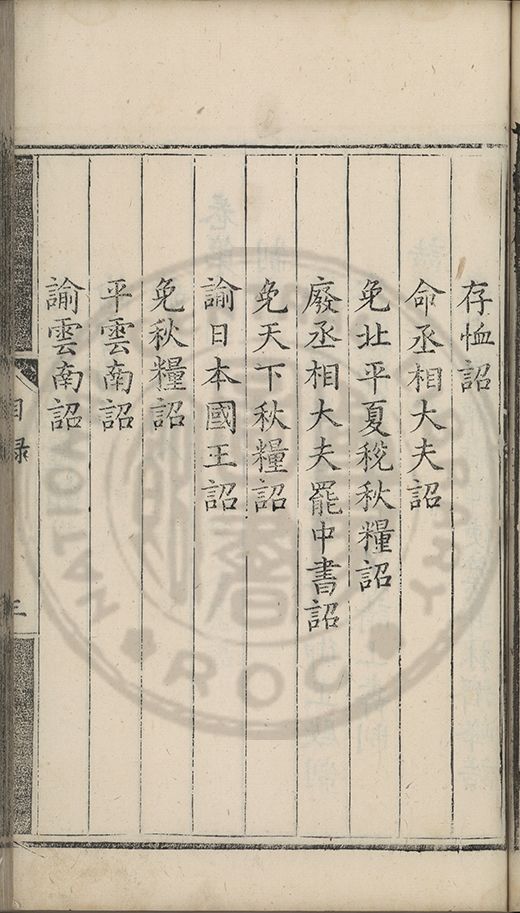 存恤詔
命丞相大夫詔
免北平夏稅秋糧詔
廢丞相大夫罷中書詔
免天下秋糧詔
諭日本國王詔
免秋糧詔
平雲南詔
諭雲南詔
目錄
三